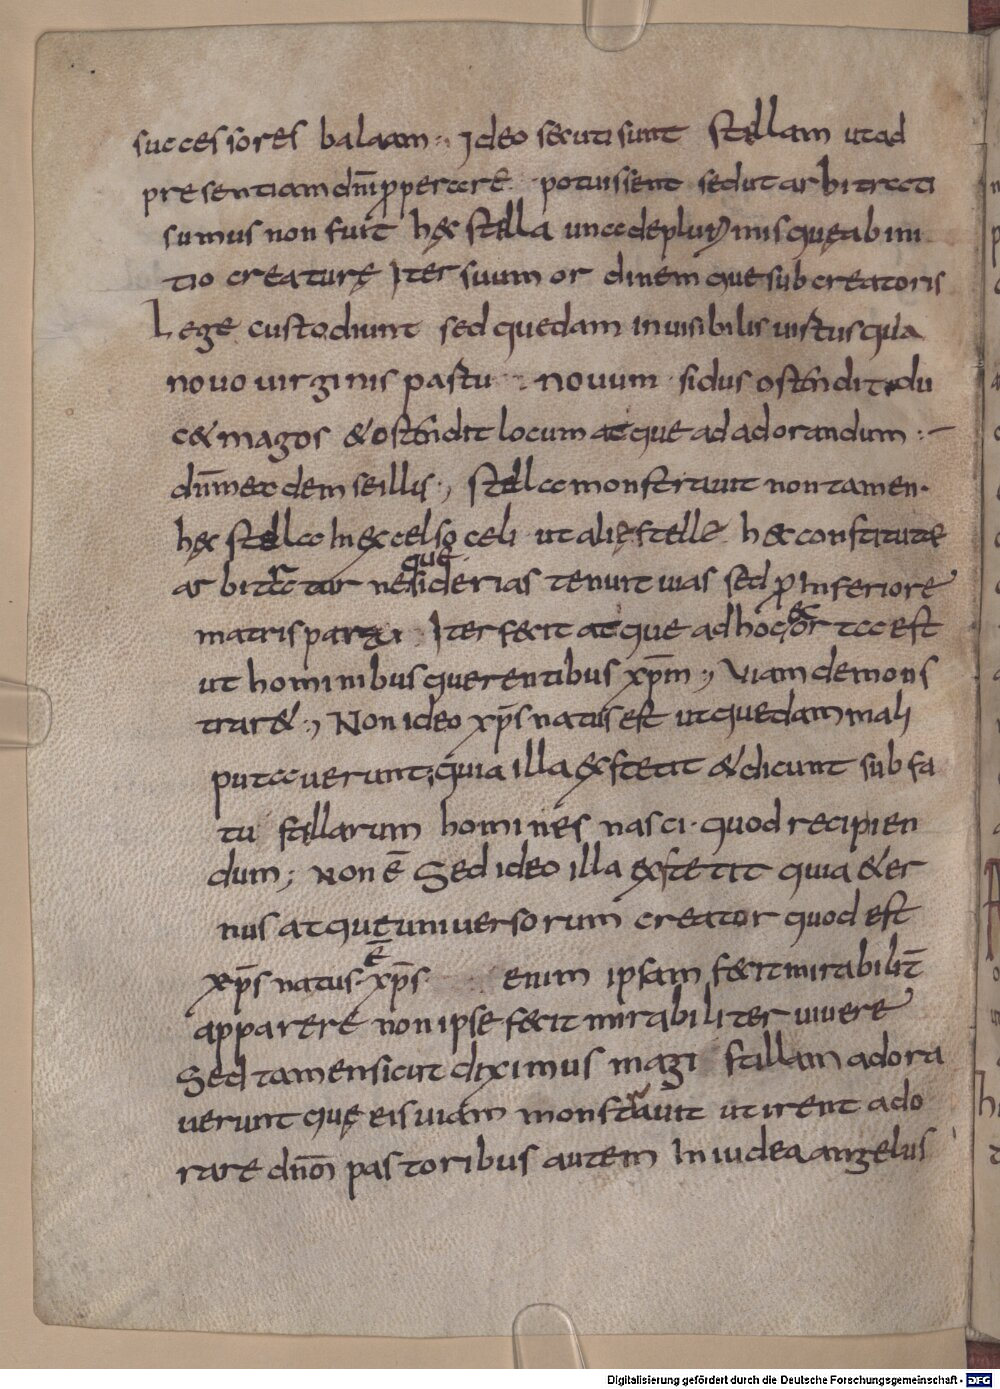 successores balaam ·, Ideo secuti sunt stellam ut ad
presentiam dnī ppertere potuissent sed ut arbitrati
sumus non fuit hęc stella una de plurimis que ab ini
tio creaturę Iter suum ordinem que sub creatoris
Lege custodiunt sed quedam inuisibilis uistus quia
nouo uirginis pastu nouum sidus ostendit du
c& magos & ostendit locum atque ad adorandum :–
dnm̄ eodem seillis ·, stella monstrauit non tamen·
hęc stella In excelso celi ut alię stelle hec constitute
que
arbitratur ne siderias tenuit uias sed p̱ Inferiore
matris parʒi Iter fecit atque ad hoc ec orta est
ut hominibus querentibus xp̄m ·, Uiam demons
trar& ·, Non ideo xp̄s natus est ut quedam mali
putauerunt; quia illa exstetit & dicunt sub fa
tu stellarum homines nasci· quod recipien
dum; non ē Sed ideo illa exstetit quia &er
nus atque uniuersorum creator quod est
ē
xp̄s natus· xp̄s· enim ipsam fecit mirabilit̄
apparere non ipse fecit mirabiliter uiuere
Sed tamen sicut diximus magi stallam adora
uerunt quę eis uiam monstrauit ut irent ado
rare dnōm pastoribus autem In iudea angelus
Digitalisierung gefördert durch die Deutsche Forschungsgemeinschaft - DFG